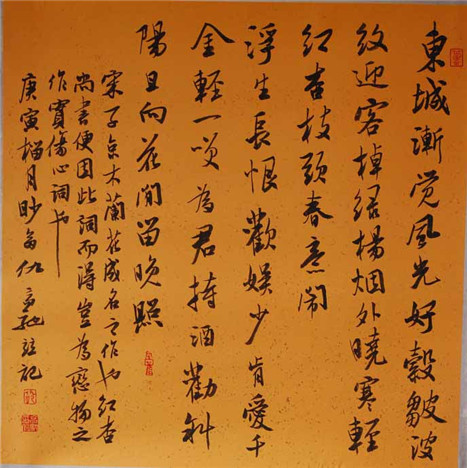 東城漸觉風光好縠皺波
紋迎客棹綠楊烟外曉寒輕
红杏枝頭春意闹
浮生長恨歡娱少肯愛千
金輕一笑為君持酒勸斜
陽且向花間留晚照
宋子京木蘭花成名之作也红杏
尚書便因此詞而得豈為感物之
作實傷心詞也
庚寅榴月眇翁仇高馳記